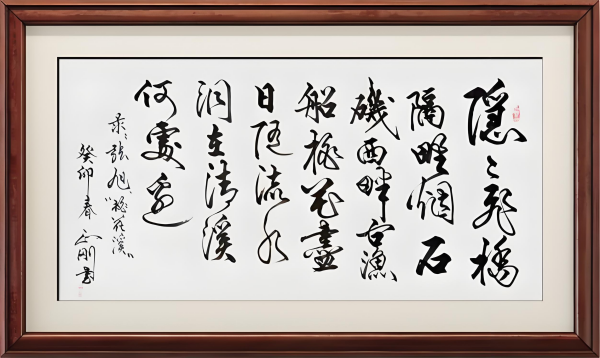 隱〻飛橋
隔野烟石
磯西畔问漁
船桃花盡
日随流水
洞在清溪
何處边
录张旭“桃花溪”
癸卯春刚书